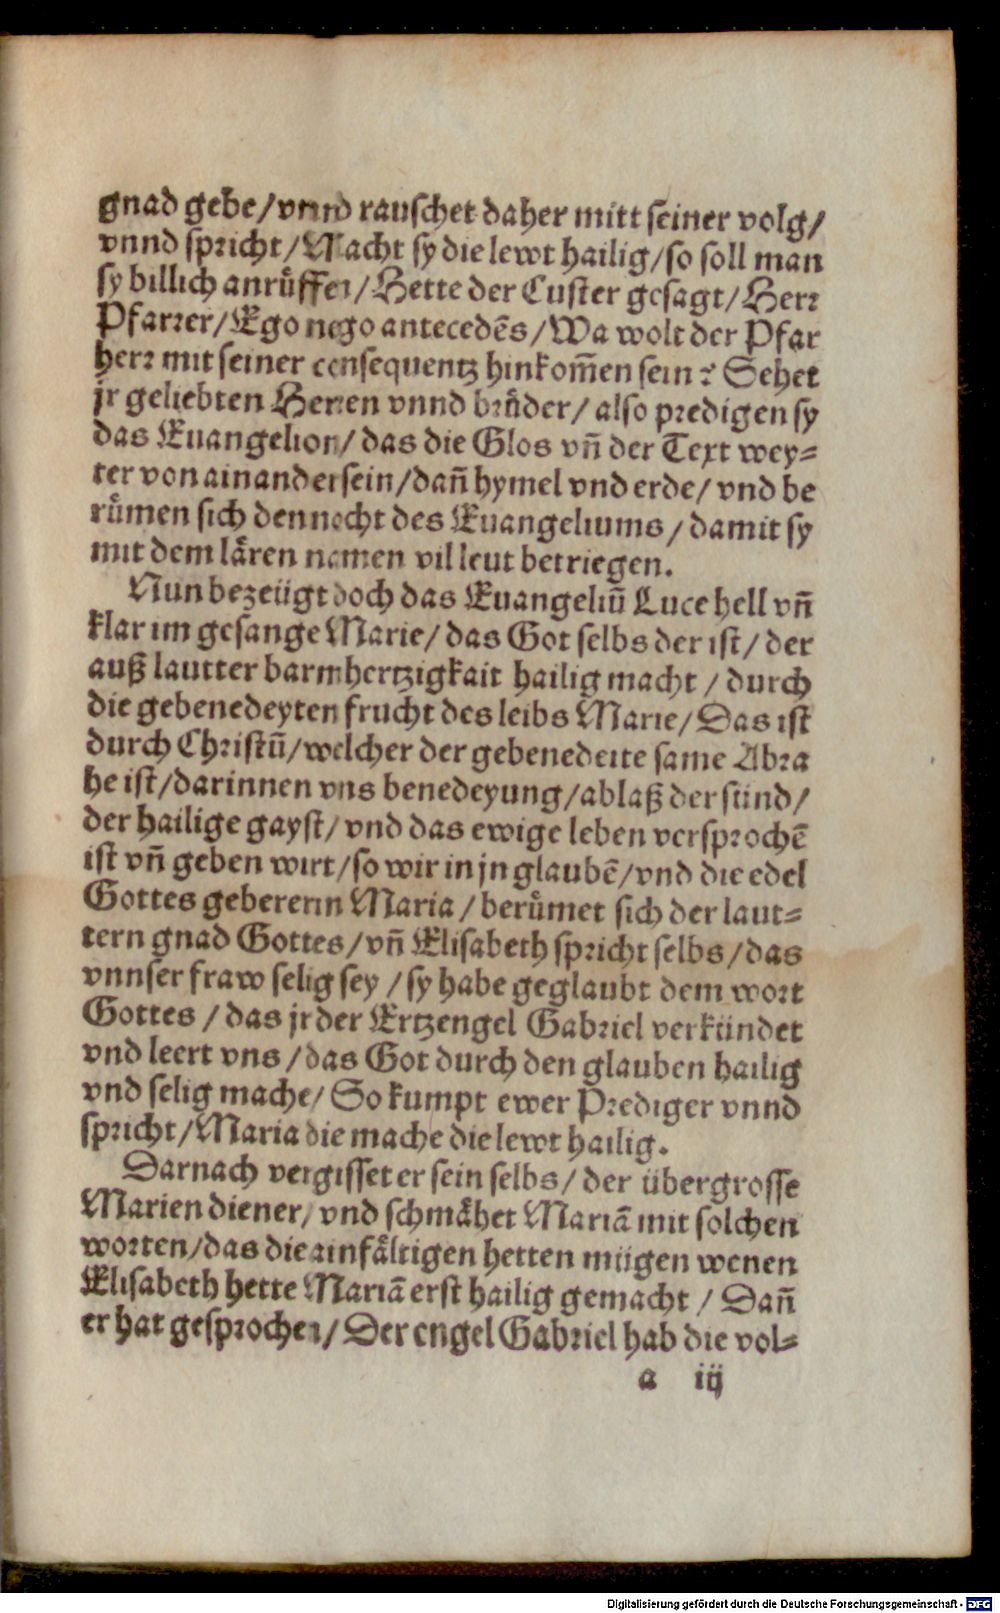 gnad gebe/vnnd rauschet daher mitt seiner volg/
vnnd spricht/Macht sy die lewt hailig/so soll man
sy billich anrůffen/Hette der Custer gesagt/Herr
Pfarrer/Ego nego antecedēs/Wa wolt der Pfar
herr mit seiner consequentz hinkom̄en sein? Sehet
jr geliebten Herren vnnd brůder/also predigen sy
das Euangelion/das die Glos vn̄ der Text wey=
ter von ainander sein/dan̄ hymel vnd erde/vnd be
růmen sich dennocht des Euangeliums/damit sy
mit dem lären namen vil leut betriegen.
Nun bezeügt doch das Euangeliū Luce hell vn̄
klar im gesange Marie/das Got selbs der ist/der
auß lautter barmhertzigkait hailig macht/durch
die gebenedeyten frucht des leibs Marie/Das ist
durch Christū/welcher der gebenedeite same Abra
he ist/darinnen vns benedeyung/ablaß der sünd/
der hailige gayst/vnd das ewige leben versprochē
ist vn̄ geben wirt/so wir in jn glaubē/vnd die edel
Gottes gebererin Maria/berůmet sich der laut=
tern gnad Gottes/vn̄ Elisabeth spricht selbs/das
vnnser fraw selig sey/sy habe geglaubt dem wort
Gottes/das jr der Ertzengel Gabriel verkündet
vnd leert vns/das Got durch den glauben hailig
vnd selig mache/So kumpt ewer Prediger vnnd
spricht/Maria die mache die lewt hailig.
Darnach vergisset er sein selbs/der übergrosse
Marien diener/vnd schmähet Mariā mit solchen
worten/das die ainfältigen hetten mügen wenen
Elisabeth hette Mariā erst hailig gemacht/Dan̄
er hat gesprochen/Der engel Gabriel hab die vol=
a iij
Digitalisierung gefördert durch die Deutsche Forschungsgemeinschaft - DFG